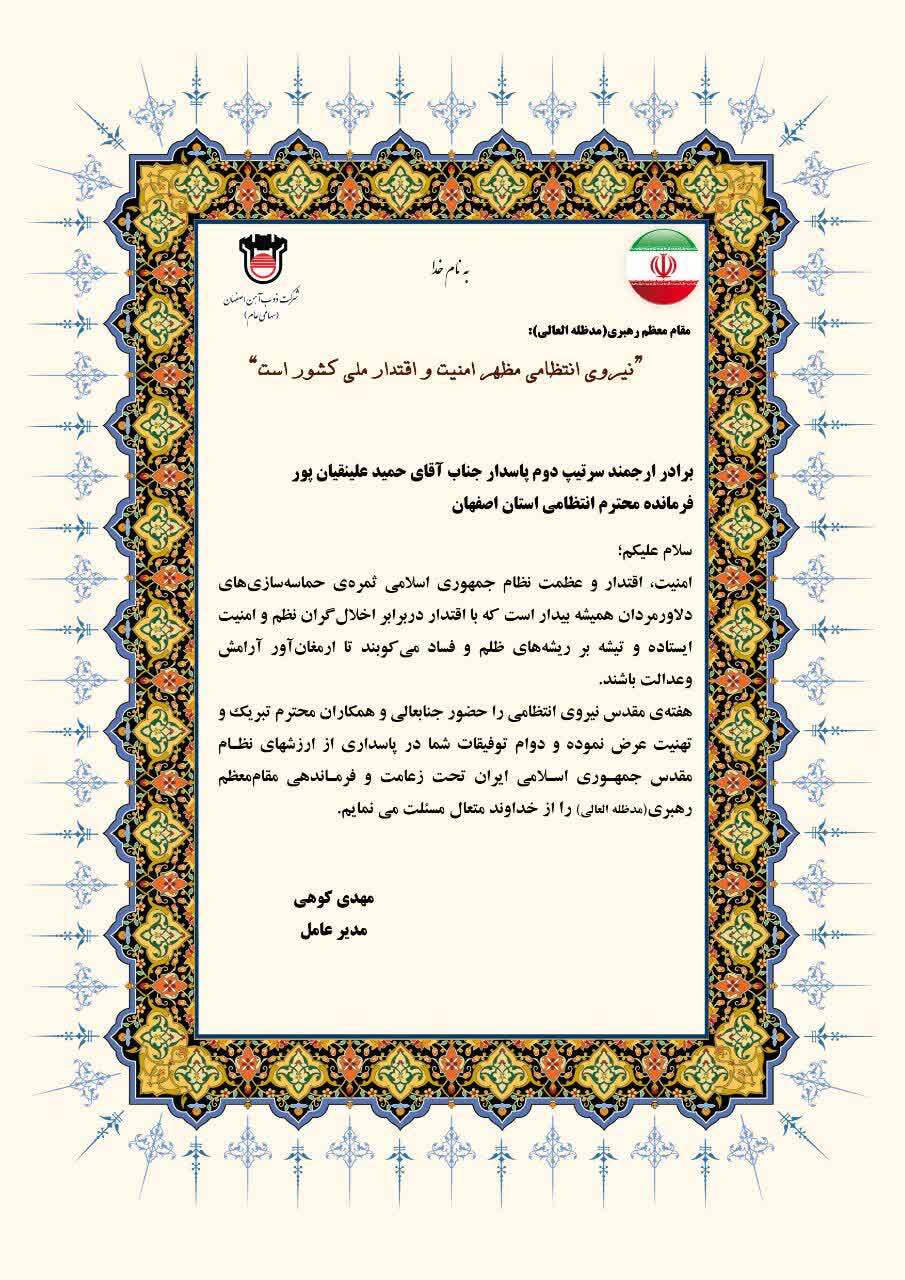 به نام خدا
شرکت ذوب آهن اصفهان
(سهامی عام)
مقام معظم رهبری(مدظله العالی):
”نیروی انتظامی مظهر امنیت و اقتدار ملی کشور است“
برادر ارجمند سرتیپ دوم پاسدار جناب آقای حمید علینقیان پور
فرمانده محترم انتظامی استان اصفهان
سلام علیکم؛
امنیت، اقتدار و عظمت نظام جمهوری اسلامی ثمره‌ی حماسه‌سازی‌های
دلاورمردان همیشه بیدار است که با اقتدار دربرابر اخلال‌گران نظم و امنیت
ایستاده و تیشه بر ریشه‌های ظلم و فساد می‌کوبند تا ارمغان‌آور آرامش
وعدالت باشند.
هفته‌ی مقدس نیروی انتظامی را حضور جنابعالی و همکاران محترم تبریک و
تهنیت عرض نموده و دوام توفیقات شما در پاسداری از ارزشهای نظـام
مقدس جمهـوری اسـلامی ایران تحت زعامت و فرمـاندهی مقام‌معظم
رهبری(مدظله العالی) را از خداوند متعال مسئلت می نمایم.
مهدی کوهی
مدیر عامل